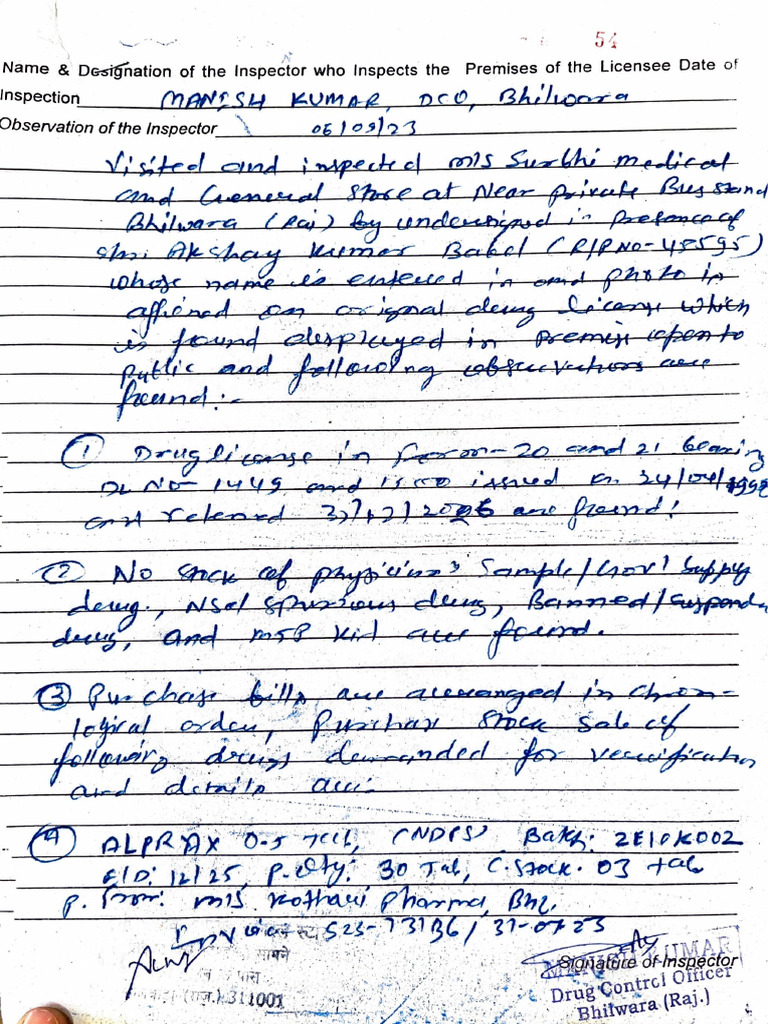 54
Name & Designation of the Inspector who Inspects the Premises of the Licensee Date of
Inspection MANISH KUMAR, DCO, Bhilwara
Observation of the Inspector 05/09/23
Visited and inspected m/s Surbhi medical
and General Store at Near private Bus stand
Bhilwara (Raj) by undersigned in presence of
shri Akshay Kumar Babel (R/P NO-48595)
whose name is entered in and photo is
affixed on original drug license which
is found displayed in premise open to
public and following observations are
found:-
① Drug license in form-20 and 21 bearing
DL NO- 1449 and issued on 24/04/1992
and retained are found!
② No stock of physician's sample/Govt supply
drug, NSQ/spurious drug, Banned/suspended
drug, and MTP kid are found.
③ Purchase bills are arranged in chron-
logical order, purchase stock sale of
following drugs demanded for verification
and details are:
④ ALPRAX 0.5 Tab, (NDPS) Batch: 2E10K002
E/D: 12/25, P. Qty: 30 Tab, C. Stock. 03 tab
P. from: m/s Kothari Pharma, Bhl.
S23-73136/31-07-23
सामने
पास
(राज.) 311001
MANISH KUMAR
Signature of Inspector
Drug Control Officer
Bhilwara (Raj.)